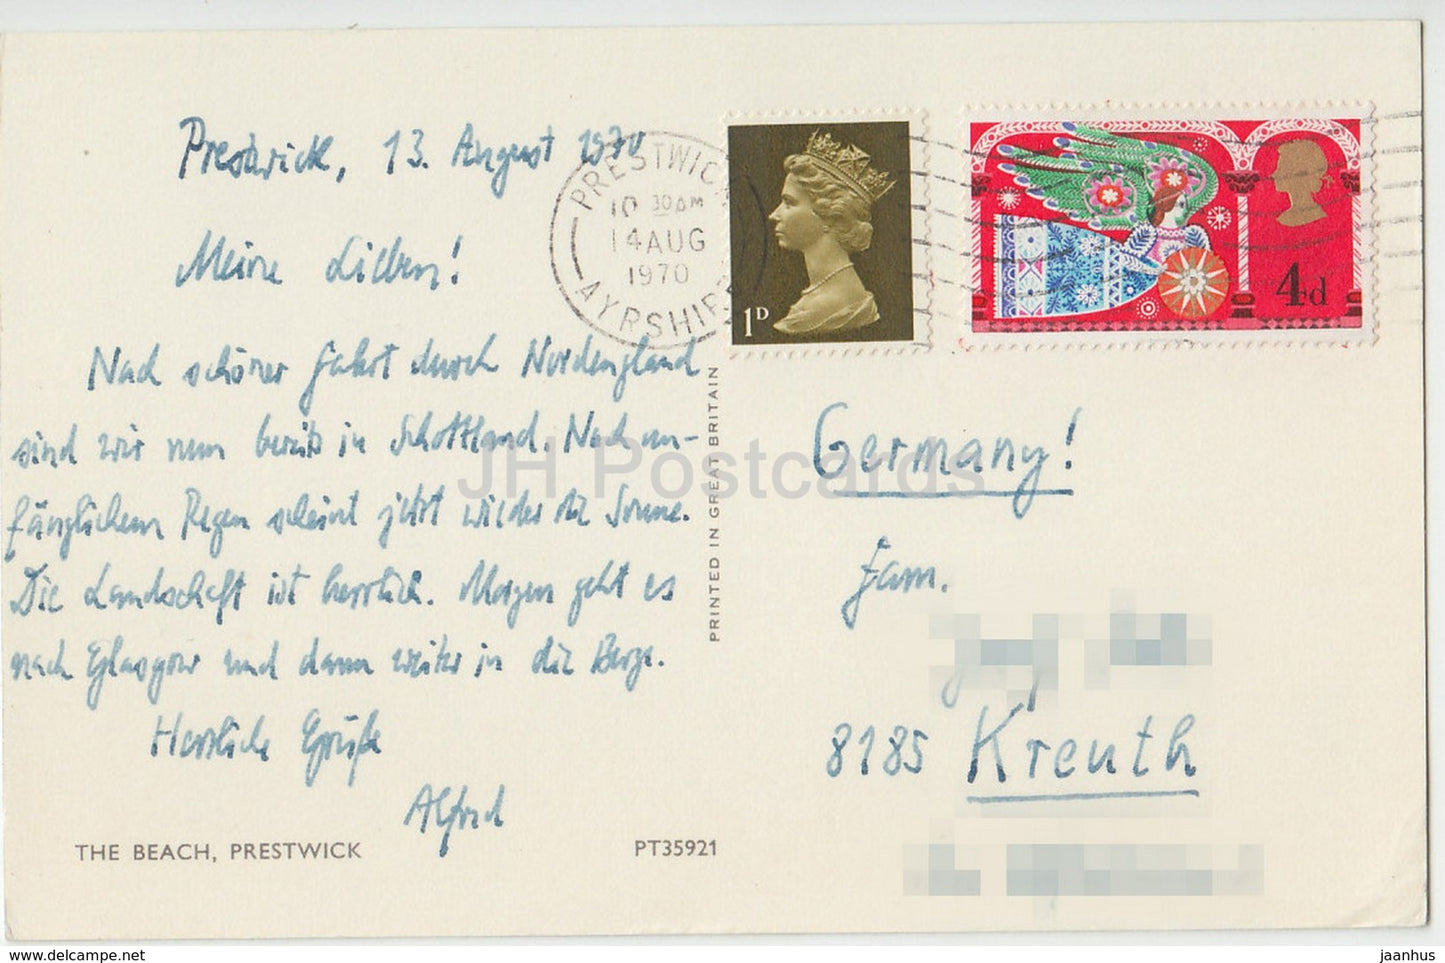 Prestwick, 13. August 1970
Meine Lieben!
Nach schöner Fahrt durch Nordengland
sind wir nun bereits in Schottland. Nach an-
fänglichem Regen scheint jetzt wieder die Sonne.
Die Landschaft ist herrlich. Morgen geht es
nach Glasgow und dann weiter in die Berge.
Herzliche Grüße
Alfred
THE BEACH, PRESTWICK
PT35921
PRINTED IN GREAT BRITAIN
PRESTWICK
10 30 AM
14 AUG
1970
AYRSHIRE
1D
4d
Germany!
Fam.
8185 Kreuth
JH Postcards
www.delcampe.net
jaanhus